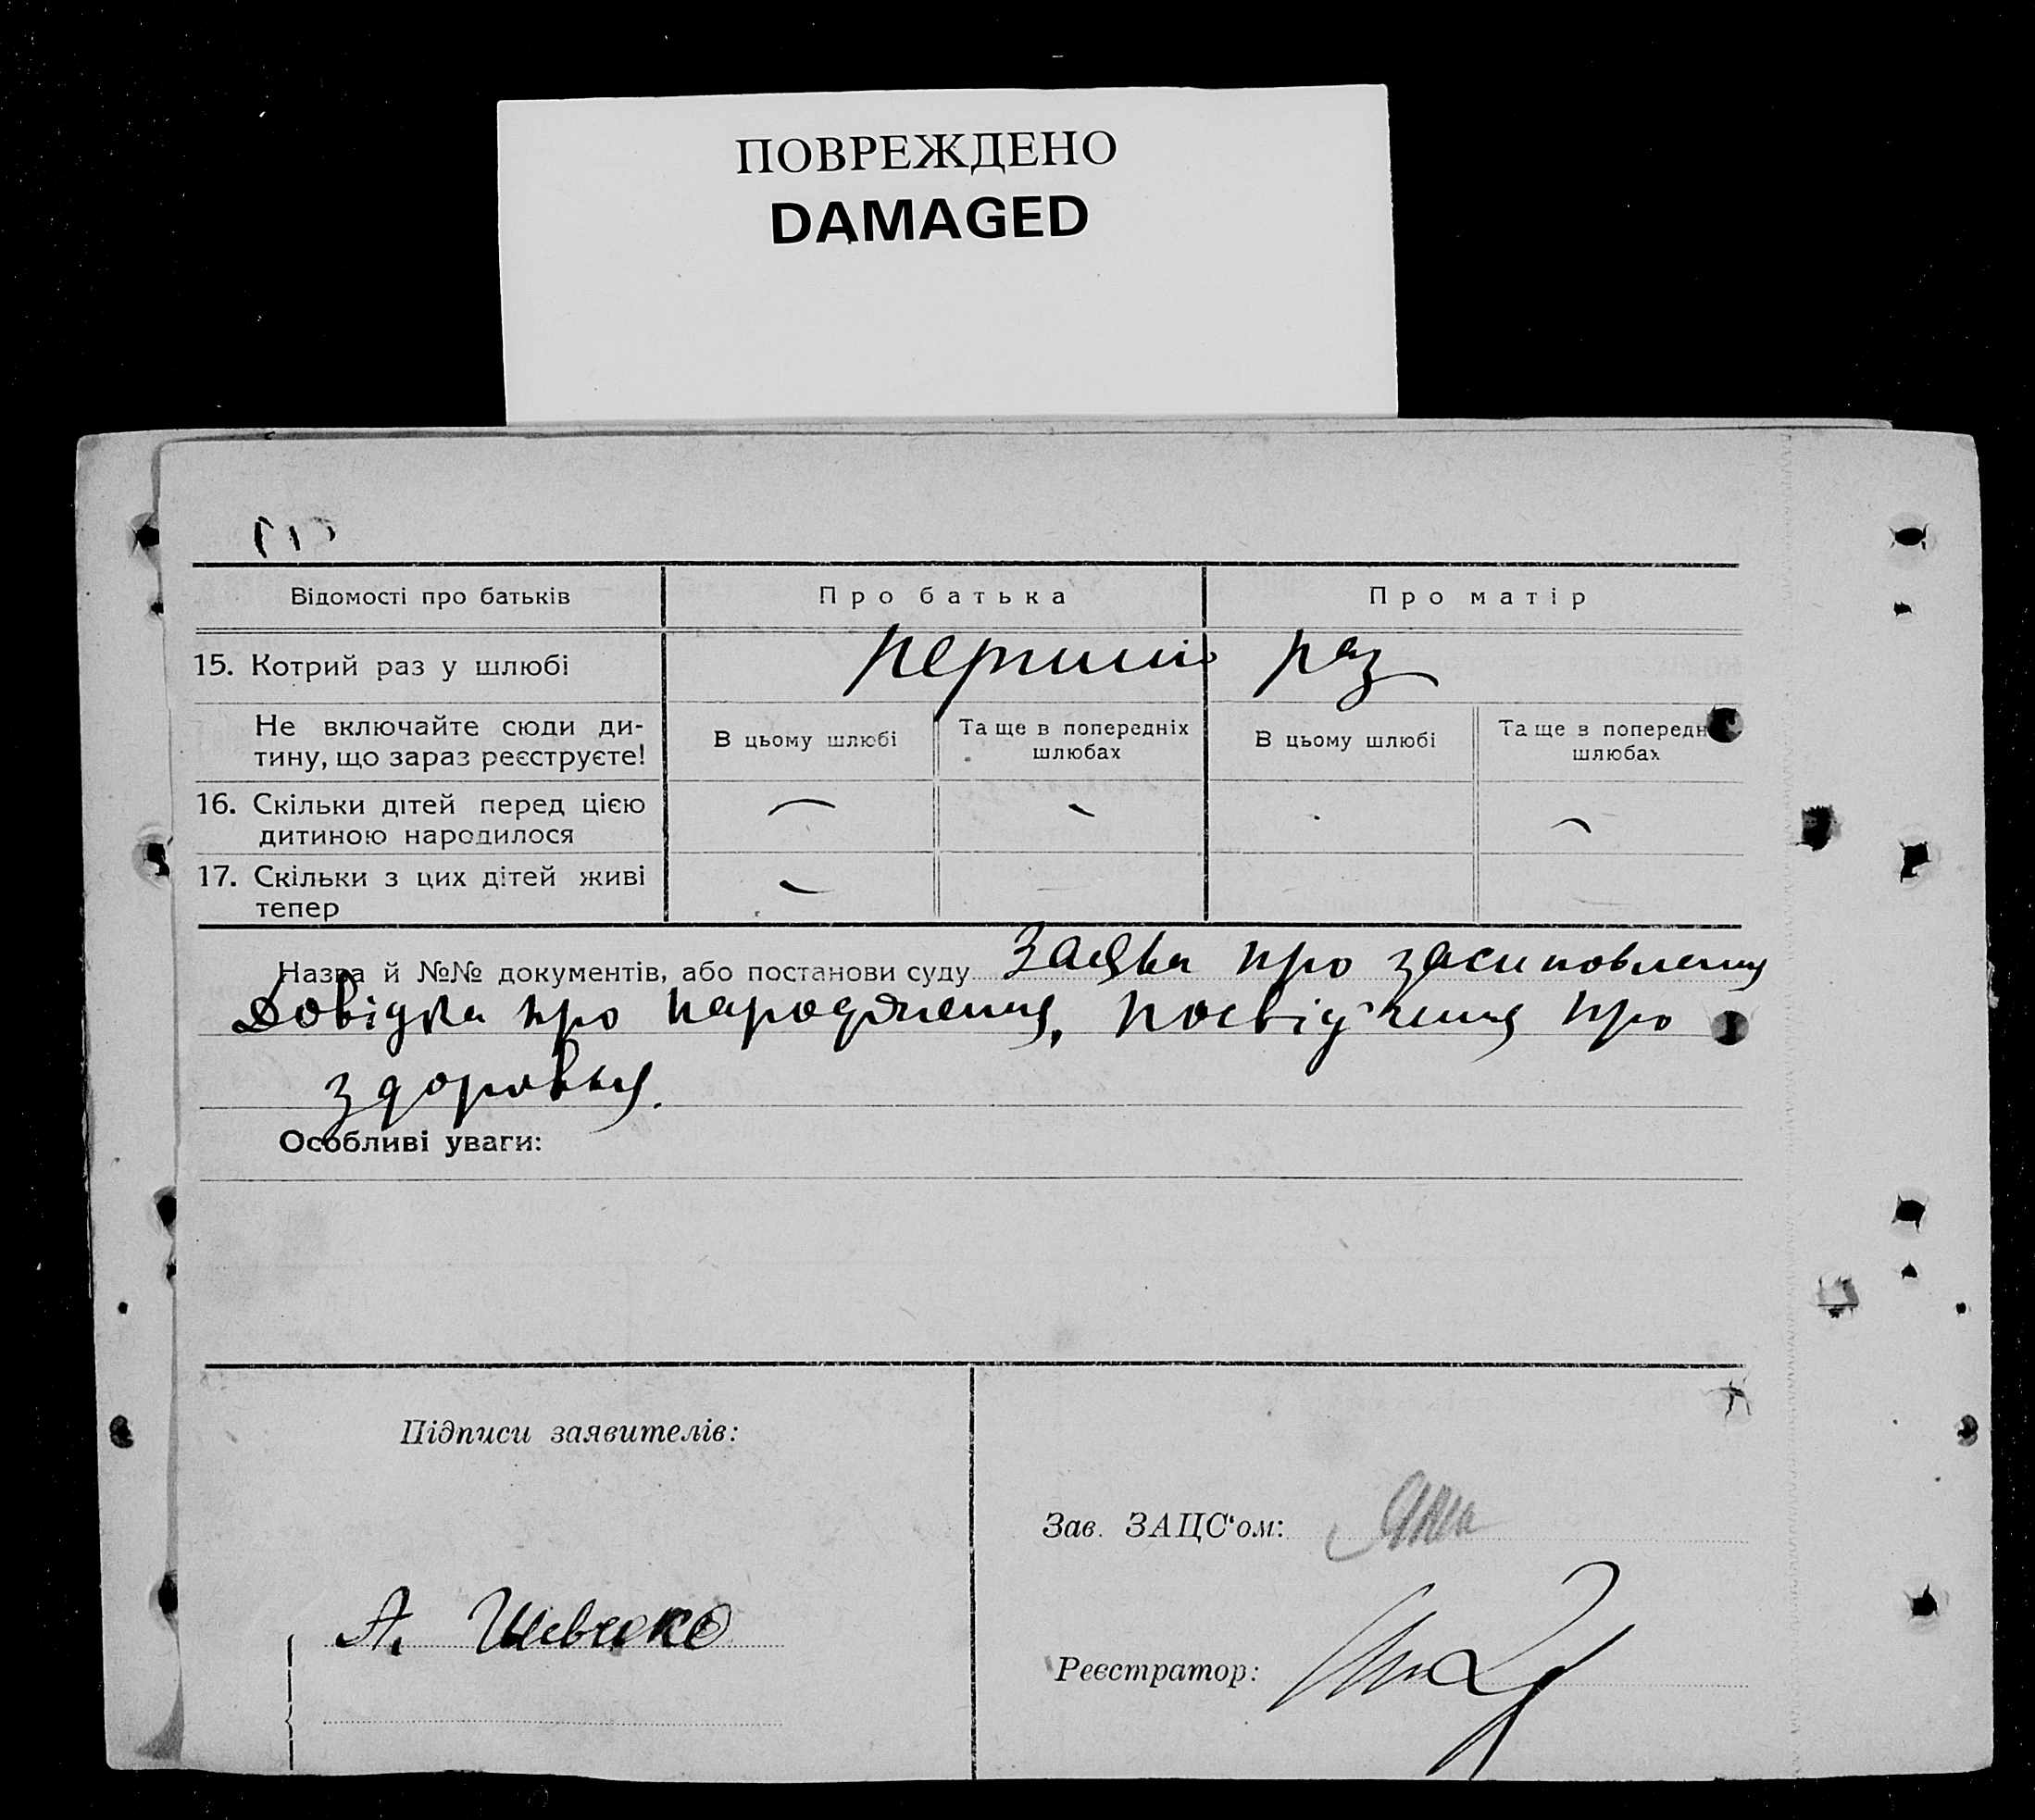 ПОВРЕЖДЕНО
DAMAGED
Відомості про батьків
Про батька
Про матір
15. Котрий раз у шлюбі
перший раз
Не включайте сюди ди-
тину, що зараз реєструєте!
В цьому шлюбі
Та ще в попередніх
шлюбах
В цьому шлюбі
Та ще в попередн
шлюбах
16. Скільки дітей перед цією
дитиною народилося
17. Скільки з цих дітей живі
тепер
Назва й №№ документів, або постанови суду Заява про засиновлення
Довідка про народження, посвідчення про
здоровья.
Особливі уваги:
Підписи заявителів:
А. Шевчеко
Зав. ЗАЦС'ом:
Реєстратор: